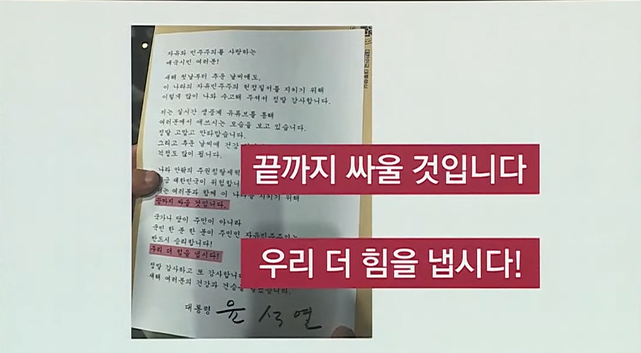 자유와 민주주의를 사랑하는
애국시민 여러분!
새해 첫날부터 추운 날씨에도,
이 나라의 자유민주주의 헌정질서를 지키기 위해
이렇게 많이 나와 수고해 주셔서 정말 감사합니다.
저는 실시간 생중계 유튜브를 통해
여러분께서 애쓰시는 모습을 보고 있습니다.
정말 고맙고 안타깝습니다.
그리고 추운 날씨에 건강
걱정도 많이 됩니다.
나라 안팎의 주권침탈세력
대한민국이 위험합니다
여러분과 함께 이 지키기 위해
끝까지 싸울 것입니다.
끝까지 싸울 것입니다
국가나 당이 주인이 아니라
국민 한 분 한 분이 주인인 자유민주주의는
반드시 승리합니다!
우리 더 힘을 냅시다!
우리 더 힘을 냅시다!
정말 감사하고 또 감사합니다
새해 여러분의 건강과 건승을
대통령 윤석열